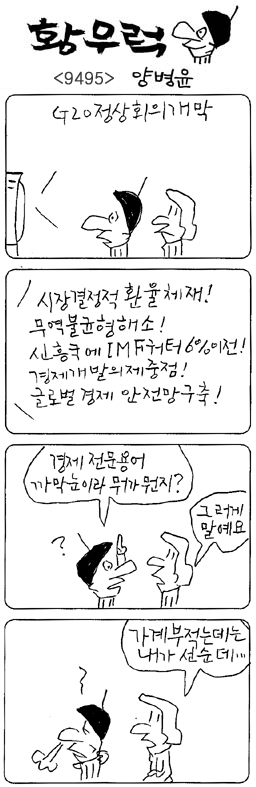 황우럭
<9495> 양병윤
G20정상회의개막
시장결정적 환율체제!
무역불균형해소!
신흥국에 IMF쿼터 6%이전!
경제개발의제중점!
글로벌경제 안전망구축!
경제 전문용어
까막눈이라 뭐가뭔지?
그러게
말예요
?
?
가계부적는데는
내가 선순데…